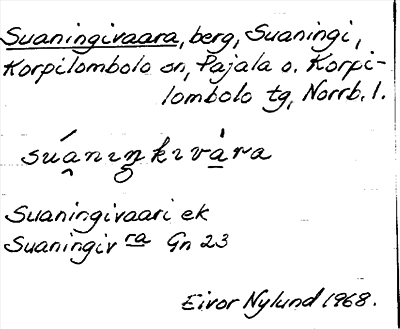 Suaningivaara, berg, Suaningi,
Korpilombolo sn, Pajala o. Korpi-
lombolo tg, Norrb. l.
suániŋkivàra
Suaningivaari ek
Suaningiv ra Gn 23
Eivor Nylund 1968.